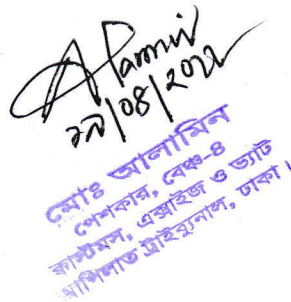 ২৯/০৪/2022
মোঃ আলামিন
পেশকার, বেঞ্চ-৪
কাস্টমস, এক্সাইজ ও ভ্যাট
আপিলাত ট্রাইব্যুনাল, ঢাকা।